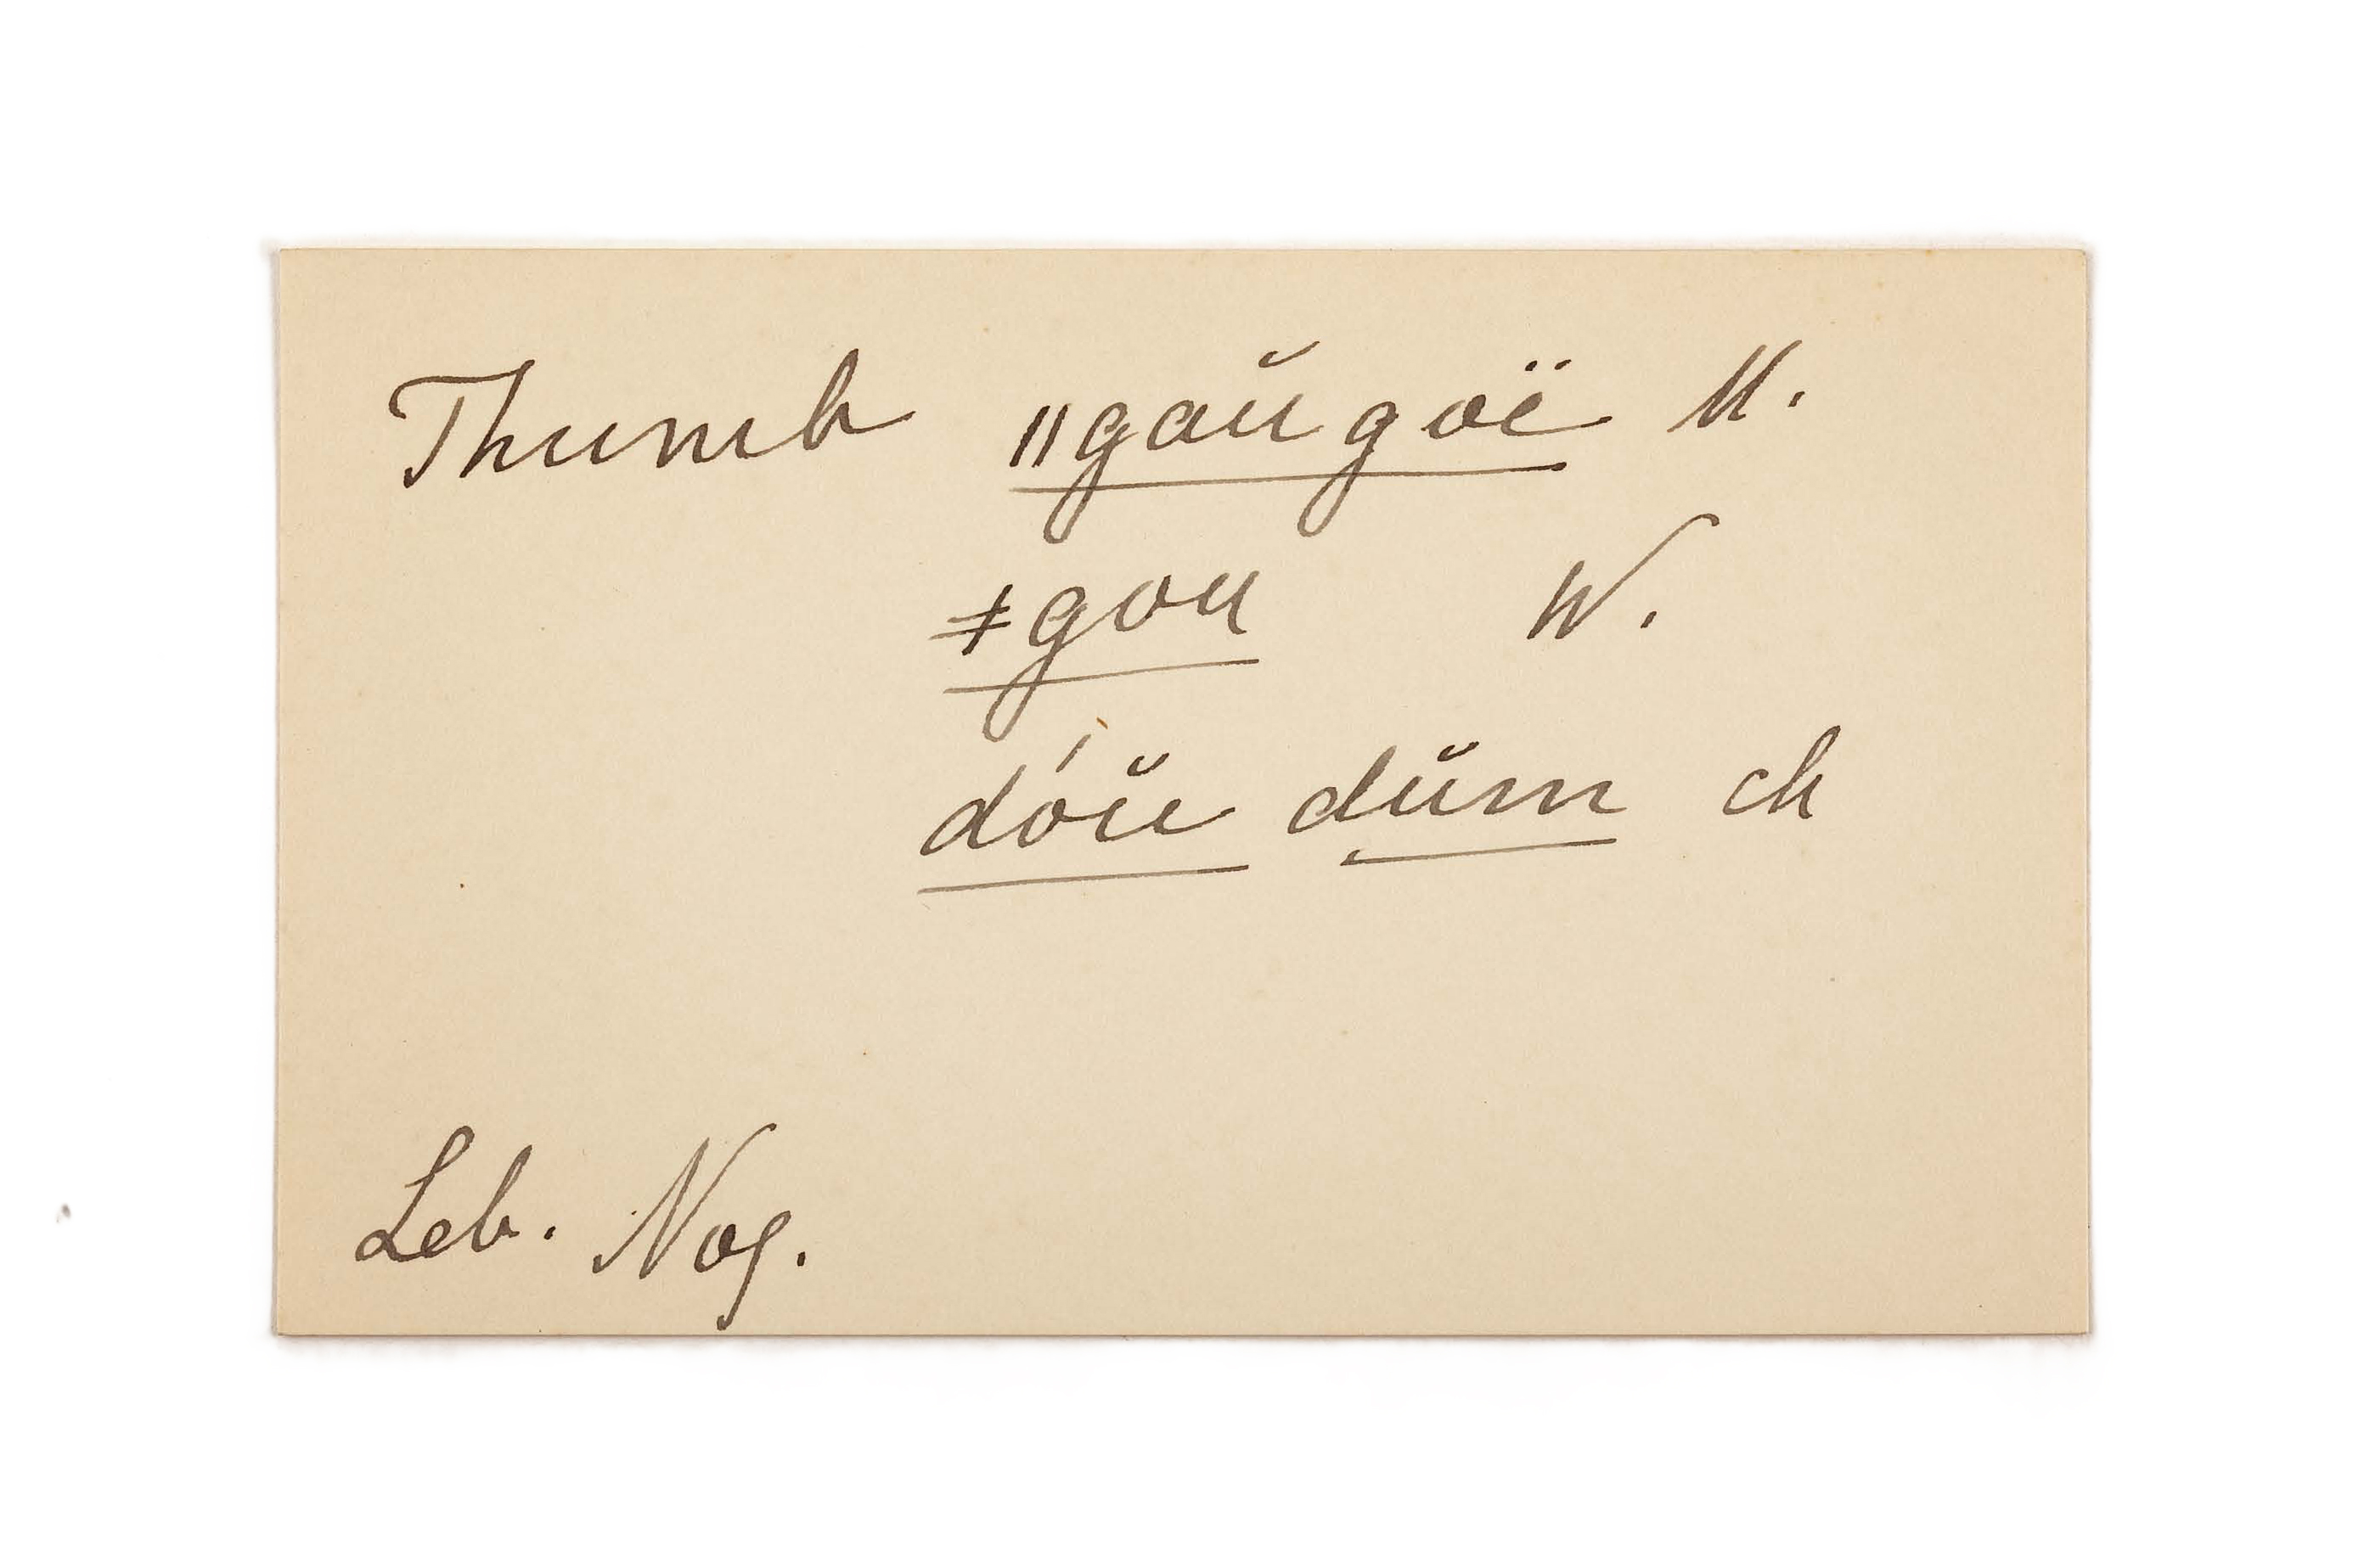 Thumb ǁgaŭgoë M.
ǂgou W.
dóŭ dŭm ch
Leb. Nog.